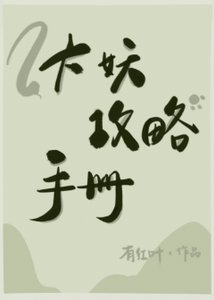 大妖
攻略
手册
有红叶·作品